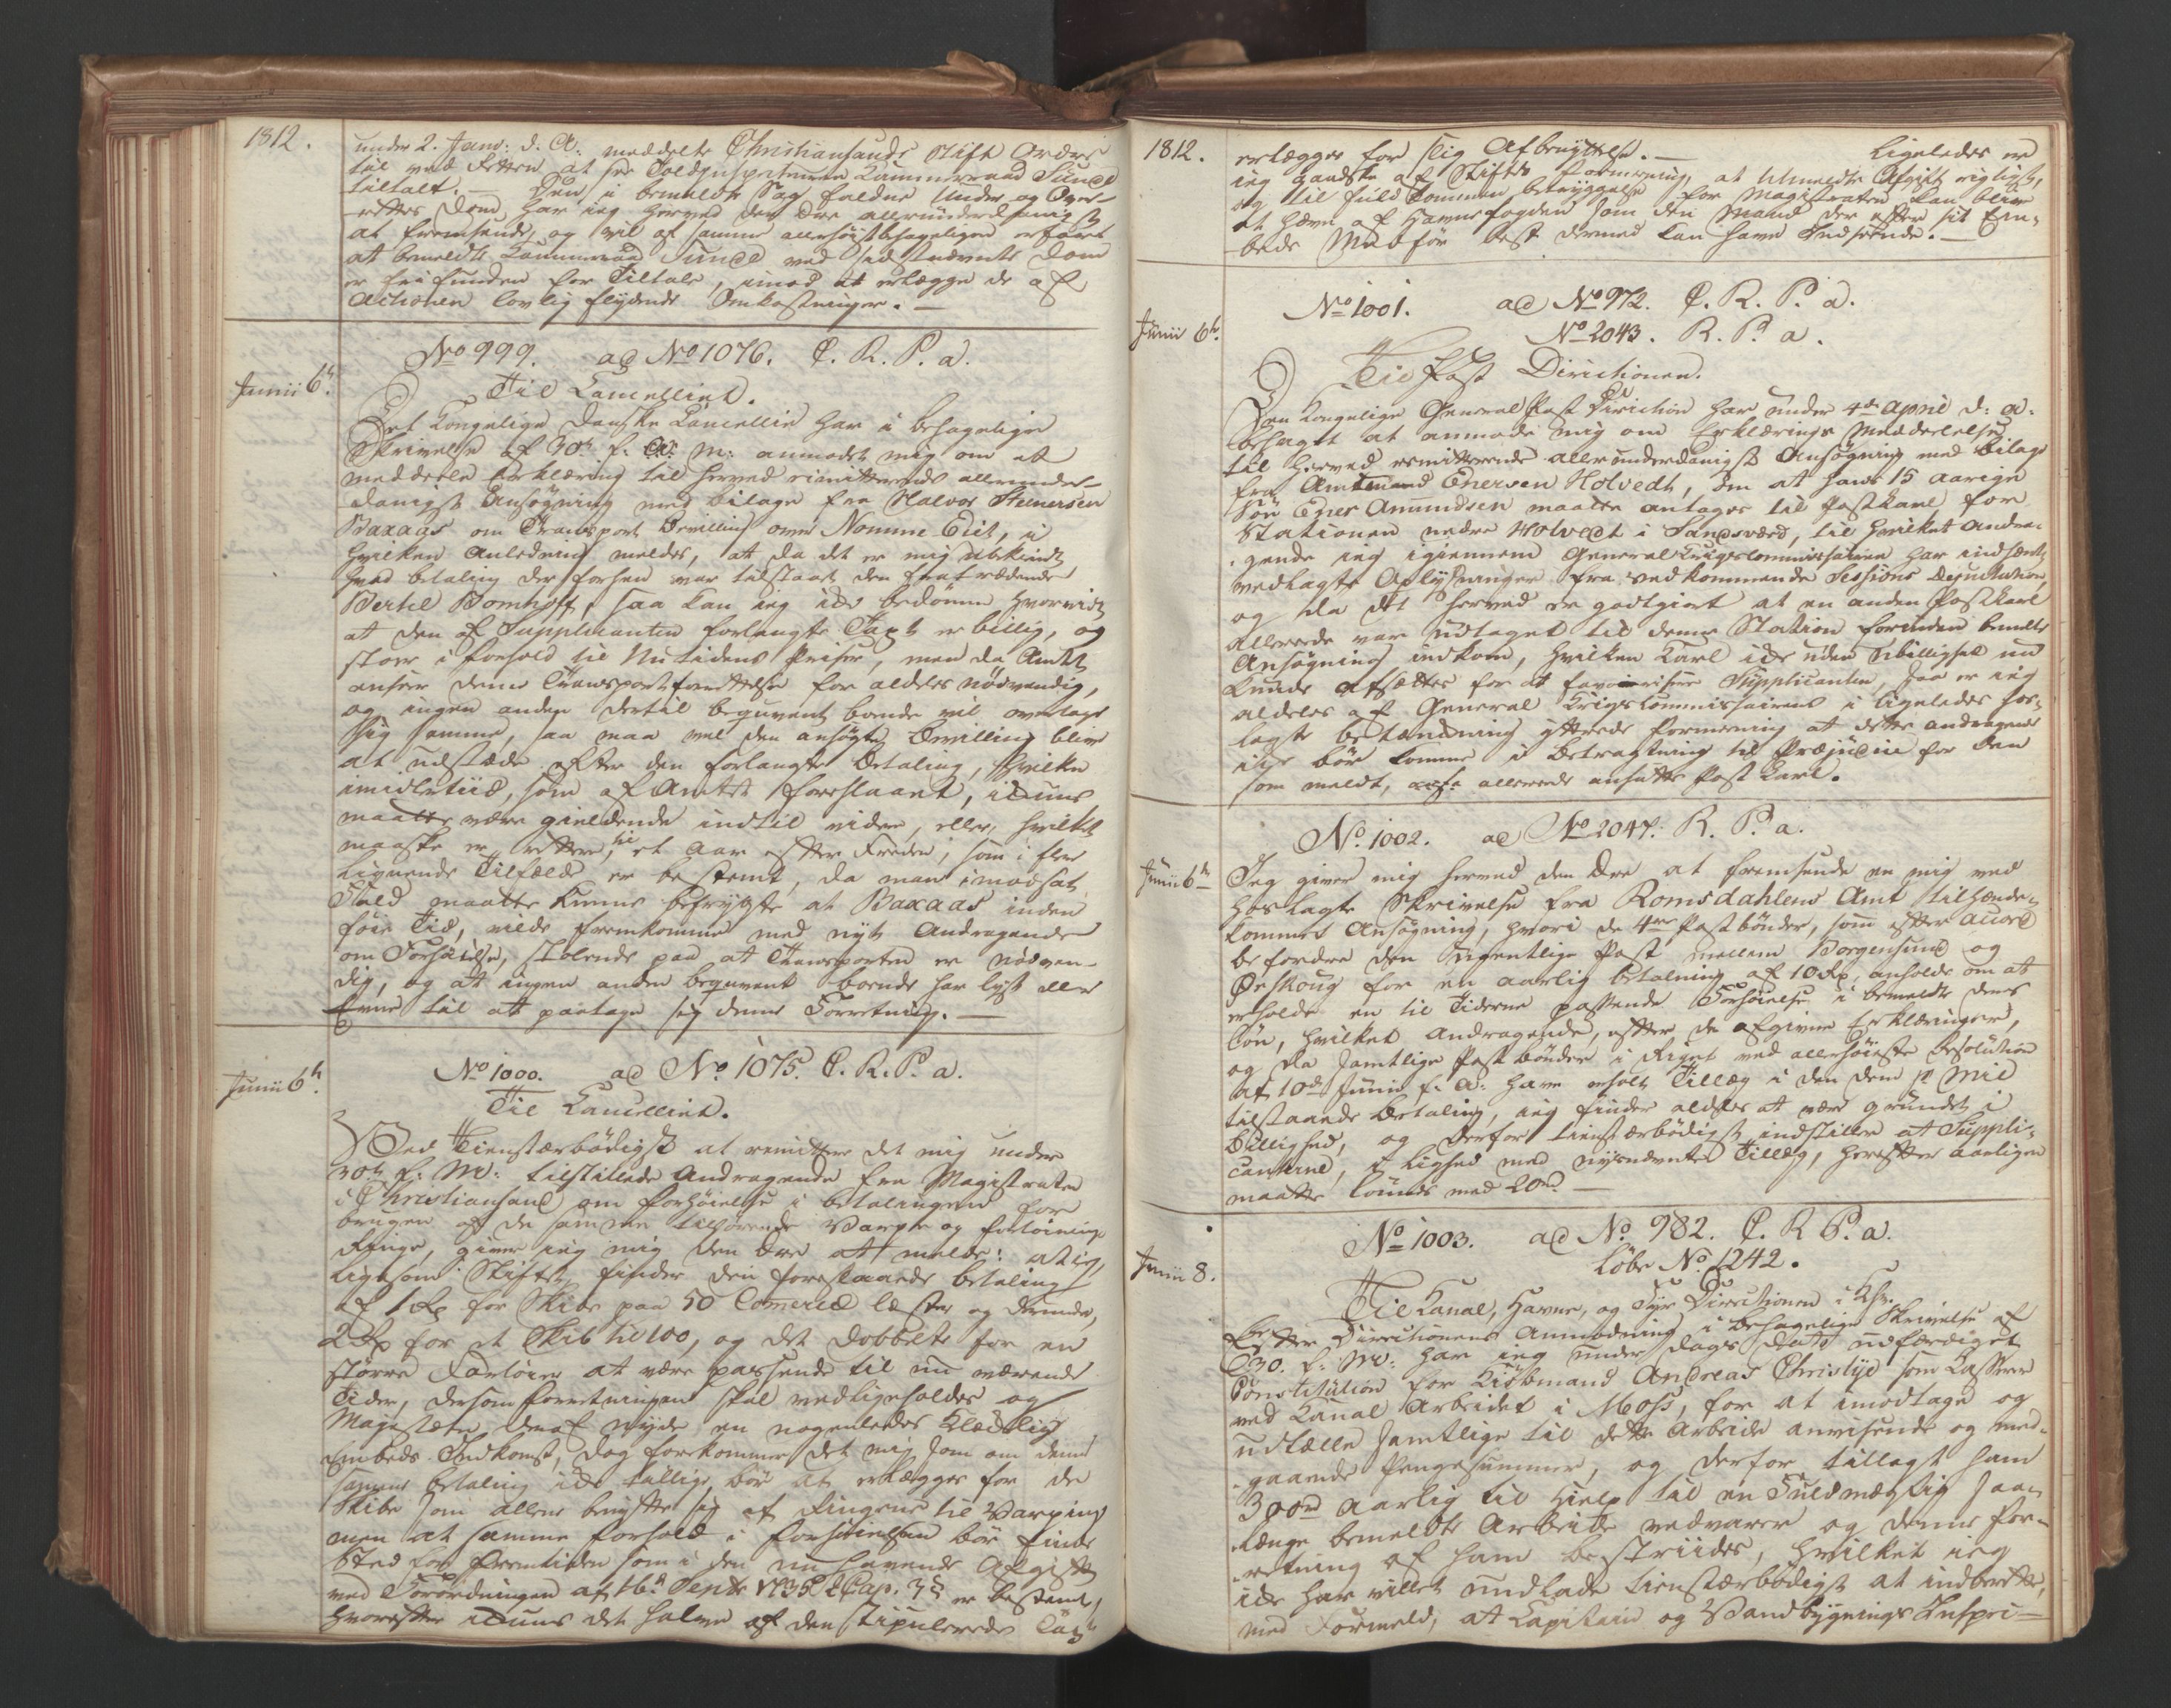 1812.
under 2. Janv: d. A: meddelte Christiansands Stift Ordre
til ved Retten at see Toldinspecteur Kammerraad Sund
tiltalt. — Den i bemeldte Sag faldne Under og Over-
rettes Dom har jeg herved den Ære allerunderdanigst
at fremsende, og vil af samme allerhøistbehageligen erfares
at bemeldte Kammerraad Sund ved sidstnævnte Dom
er frifunden for Tiltale, imod at erlægge de af
Actionen lovlig flydende Omkostninger. —
No 999. ad No 1076. C. R. P. a.
Junii 6te
Til Cancelliet.
Det Kongelige Danske Cancellie har i behagelig
Skrivelse af 30te f. M: anmodet mig om at
meddele Erklæring til herved remitterende allerunder-
danigst Ansøgning med bilage fra Halvor Steenersen
Baxaas om Transport Bevilling over Nomme Eid, i
hvilken Anledning meldes, at da det er mig ubekiendt
hvad betaling der forhen var tilstaaet den fratrædende
Bertel Bomhoff, saa kan jeg ikke bedømme hvorvidt
at den af Supplicanten forlangte Taxt er billig, og
staar i forhold til Nutidens Priser, men da Amtet
anseer denne Transportsindrettelse for aldeles nødvendig,
og ingen anden dertil beqvemt boende vil overtage
sig samme, saa maa vel den ansøgte Bevilling blive
at udstæde efter den forlangte Betaling, hvilken
imidlertid, som af Amtet foreslaaet, ikkuns
maatte være gieldende indtil videre, eller, hvilket
maaske er rettere, til et Aar efter Freden, som i flere
lignende Tilfælde er bestemt, da man i modsat
Fald maatte kunne befrygte at Baxaas inden
føie Tid, vilde fremkomme med nyt Andragende
om Forhøielse, stolende paa at Transporten er nødven-
dig, og at ingen anden beqvemt boende har lyst eller
Evne til at paatage sig denne Forretning. —
No 1000. ad No 1075. C. R. P. a.
Junii 6te
Til Cancelliet.
Ved Tienstærbødigst at remittere det mig under
30te f: M: tilstillede Andragende fra Magistraten
i Christiansand om forhøielse i betalingen for
brugen af de samme tilhørende Varpe og fortøinings
Ringe, giver jeg mig den Ære at melde: at jeg,
ligesom Stiftet, finder den foreslaaede betaling
af 1 Rd for Skibe paa 50 Comercelæster og derunder,
2 Rd for et Skib til 100, og det dobbelte for en
større at være passende til nu værende
Tider, dersom forretningen skal vedligeholdes og
Magistraten deraf nyde en nogenledes
Embeds Indkomst, dog forekommer det mig som om denne
samme betaling ikke tillige bør at erlægges for de
Skibe som allene benytte sig af Ringene til Varping
men at samme forhold i forhøielsen bør finde
Sted for Fremtiden som i den nu havende Afgift
ved Forordningen af 16de Septr 1735 2 Cap. 3 § er bestemt,
hvorefter ikkuns det halve af den stipulerede Taxt
1812.
erlægges for slig Afbenyttelse. — Ligeledes er
jeg ganske af Stiftets formening, at Afgift rigtigst,
og til fuldkommen betryggelse for Magistraten kan blive
at hæve af Havnefogden som den Mand der efter sit Em-
bede best dermed kan have Indseende. —
No 1001. ad No 972. C. R. P. a.
No 2043. R. P. a.
Junii 6te
Til Post Directionen.
Den Kongelige General Post Direction har under 4de April d: a:
behaget at anmode mig om Erklærings Meddelelse
til herved remitterende allerunderdanigst Ansøgning med bilage
fra Amtmand Enersen Holvedt, om at hans 15 aarige
Søn Ener Amundsen maatte antages til Postkarl for
Stationen nedre Holvedt i Sandsværd, til hvilket Andra-
gende jeg igiennem GeneralKrigsCommissairen har indhæntet
vedlagte Oplysninger fra vedkommende Sessions Deputation,
og da det herved er godtgiort at en anden Postkarl
allerede var udtaget til denne Station forinden bemeldte
Ansøgning indkom, hvilken Karl ikke uden Ubillighed nu
kunde afsættes for at favorisere Supplicanten, saa er jeg
aldeles af General Krigscommissairens i ligeledes her-
lagte betænkning yttrede formening at dette andragende
ikke bør komme i betragtning til Præjudice for den
som meldt, allerede ansatte Post Karl.
No 1002. ad No 2047. R. P. a.
Junii 6te
Jeg giver mig herved den Ære at fremsende en mig ved
hoslagte Skrivelse fra Romsdahlens Amt tilhænde-
kommet Ansøgning, hvori de 4re Postbønder, som efter Accord
befordre den ugentlige Post mellem Borgensund og
Ørskoug for en aarlig betalning af 10 Rd, anholde om at
erholde en til Tiderne passende Forhøielse i bemeldte deres
Løn, hvilket Andragende, efter de afgivne Erklæringer,
og da samtlige Postbønder i Riget ved allerhøieste Resolution
af 10de Junii f. A: have erholdt Tillæg i den dem pr Mil
tilstaaede Betaling, jeg finder aldeles at være grundet i
Billighed, og derfor tienstærbødigst indstiller at Suppli-
canterne, i Lighed med nysnævnte Tillæg, herefter aarligen
maatte lønnes med 20 Rd. —
No 1003. ad No 982. C. R P. a.
Løbe No 1242.
Junii 8.
Til Kanal, Havne, og Fyr Directionen i Khv.
Efter Directionens Anmodning i behagelige Skrivelse af
30. f: M: har jeg under Dags Dato udfærdiget
Constitution for Kiøbmand Andreas Christye som Kasserer
ved Kanal Arbeidet i Moss, for at imodtage og
udtælle samtlige til dette Arbeide anvisende og med-
gaaende Pengesummer, og derfor tillagt ham
300 Rd aarlig til Hielp til en Fuldmægtig saa-
længe bemeldte Arbeide vedvarer og denne for-
retning af ham bestriides, hvilket jeg
ikke har villet undlade tienstærbødigst at indberette,
med Formeld, at Kapitain og Vandbygnings Inspec-